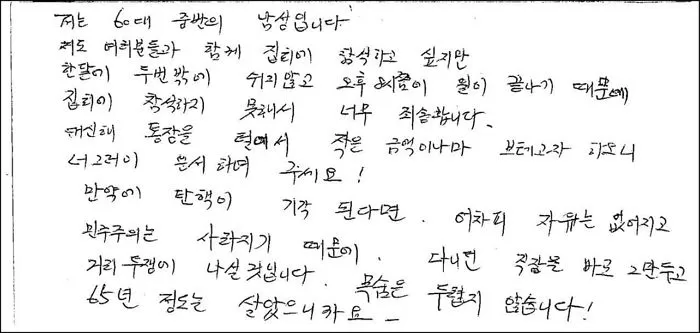 저는 60대 중반의 남성입니다
저도 여러분들과 함께 집회에 참석하고 싶지만
한달에 두번 밖에 쉬지않고 오후 8시쯤이 일이 끝나기 때문에
집회에 참석하지 못해서 너무 죄송합니다.
대신해 통장을 털어서 작은 금액이나마 보태고자 하오니
너그러이 용서 하여 주세요!
만약에 탄핵이 기각 된다면. 어차피 자유는 없어지고
민주주의는 사라지기 때문에. 다니던 직장을 바로 그만두고
거리투쟁에 나설것입니다. 목숨은 두렵지 않습니다!
65년 정도는 살았으니까요